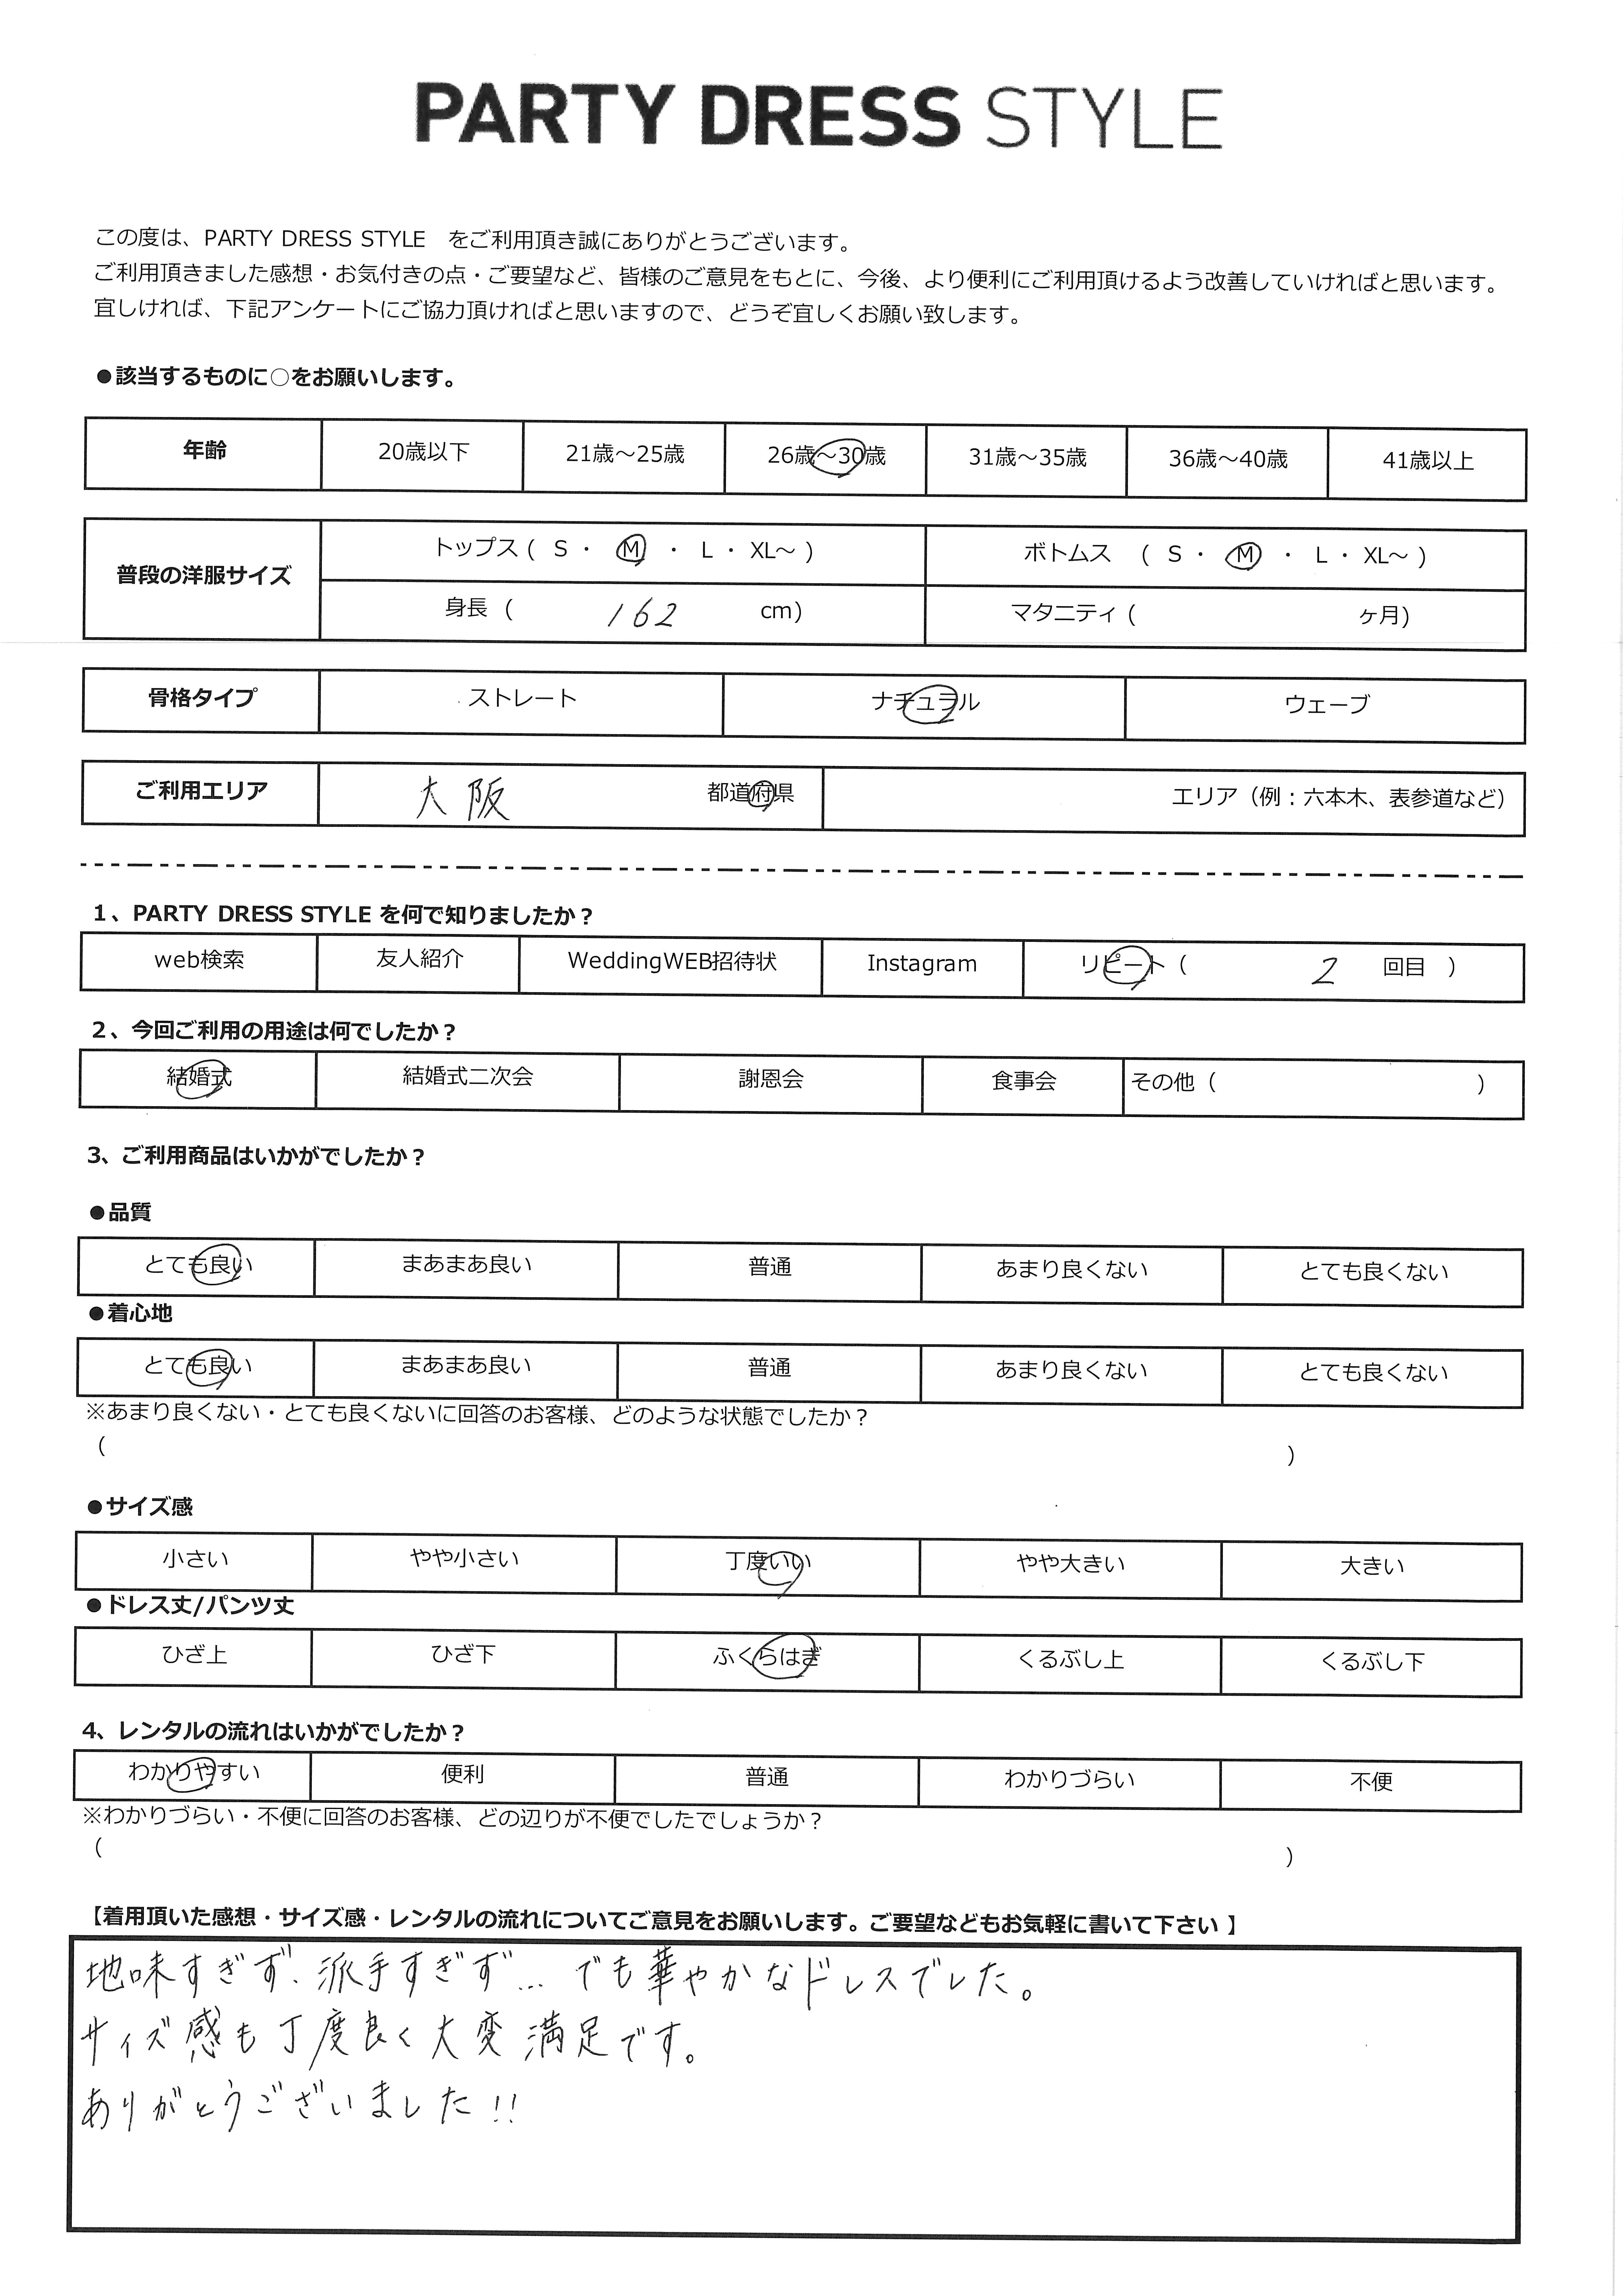 PARTY DRESS STYLE
この度は、PARTY DRESS STYLE　をご利用頂き誠にありがとうございます。
ご利用頂きました感想・お気付きの点・ご要望など、皆様のご意見をもとに、今後、より便利にご利用頂けるよう改善していければと思います。
宜しければ、下記アンケートにご協力頂ければと思いますので、どうぞ宜しくお願い致します。
●該当するものに○をお願いします。
年齢 20歳以下 21歳～25歳 26歳～30歳 31歳～35歳 36歳～40歳 41歳以上
普段の洋服サイズ トップス ( S ・ M ・ L ・ XL～ ) ボトムス ( S ・ M ・ L ・ XL～ )
身長 ( 162 cm) マタニティ ( ヶ月)
骨格タイプ ストレート ナチュラル ウェーブ
ご利用エリア 大阪 都道府県 エリア（例：六本木、表参道など）
1、PARTY DRESS STYLE を何で知りましたか？
web検索 友人紹介 WeddingWEB招待状 Instagram リピート ( 2 回目 )
2、今回ご利用の用途は何でしたか？
結婚式 結婚式二次会 謝恩会 食事会 その他 ( )
3、ご利用商品はいかがでしたか？
●品質
とても良い まあまあ良い 普通 あまり良くない とても良くない
●着心地
とても良い まあまあ良い 普通 あまり良くない とても良くない
※あまり良くない・とても良くないに回答のお客様、どのような状態でしたか？
( )
●サイズ感
小さい やや小さい 丁度いい やや大きい 大きい
●ドレス丈/パンツ丈
ひざ上 ひざ下 ふくらはぎ くるぶし上 くるぶし下
4、レンタルの流れはいかがでしたか？
わかりやすい 便利 普通 わかりづらい 不便
※わかりづらい・不便に回答のお客様、どの辺りが不便でしたでしょうか？
( )
【着用頂いた感想・サイズ感・レンタルの流れについてご意見をお願いします。ご要望などもお気軽に書いて下さい 】
地味すぎず、派手すぎず… でも華やかなドレスでした。
サイズ感も丁度良く大変満足です。
ありがとうございました!!